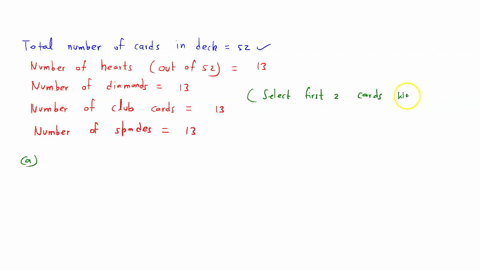 Total number of cards in deck = 52 ✓
Number of hearts (out of 52) = 13
Number of diamonds = 13
(Select first 2 cards
Number of club cards = 13
Number of spades = 13
(a)